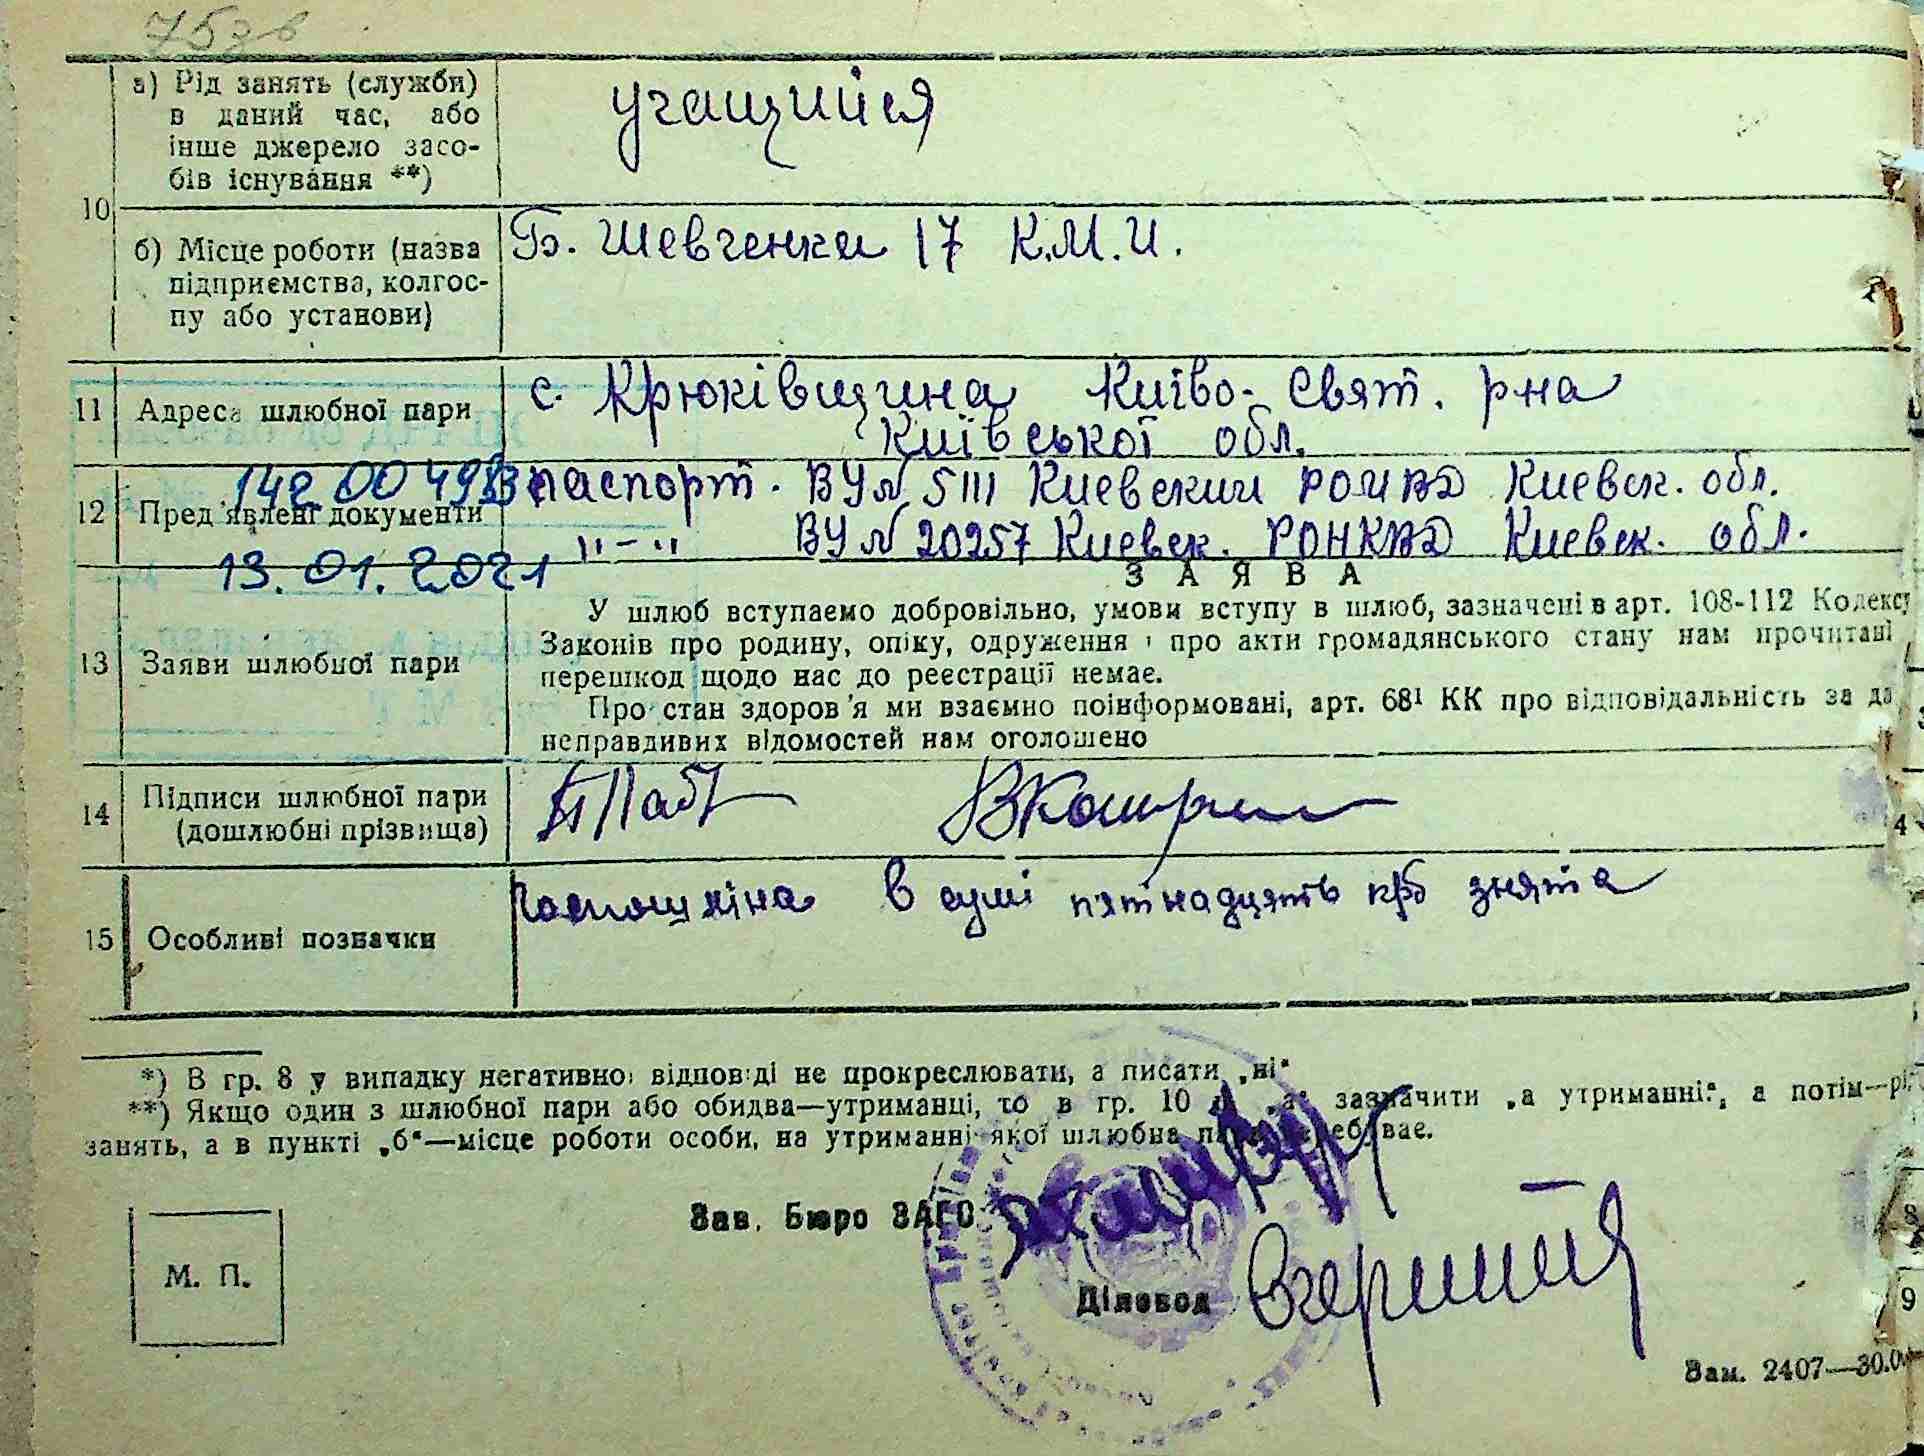 75зв
а) Рід занять (служби)
в даний час, або
інше джерело засо-
бів існування **)
учащийся
10
б) Місце роботи (назва
підприємства, колгос-
пу або установи)
Б. Шевченка 17 К.М.И.
11 Адреса шлюбної пари
с. Крюківщина Київо-Свят. р-на
Київської обл.
142 00 498
12 Пред'явлені документи
паспорт. ВУ № 5111 Киевский РОМВД Киевск. обл.
"-" ВУ № 20257 Киевск. РОНКВД Киевск. обл.
13.01.2021
13 Заяви шлюбної пари
ЗАЯВА
У шлюб вступаємо добровільно, умови вступу в шлюб, зазначені в арт. 108-112 Кодексу
Законів про родину, опіку, одруження і про акти громадянського стану нам прочитані
перешкод щодо нас до реєстрації немає.
Про стан здоров'я ми взаємно поінформовані, арт. 68¹ КК про відповідальність за да
неправдивих відомостей нам оголошено
14 Підписи шлюбної пари
(дошлюбні прізвища)
15 Особливі позначки
в сумі п'ятнадцять крб знята
*) В гр. 8 у випадку негативної відповіді не прокреслювати, а писати „ні“
**) Якщо один з шлюбної пари або обидва—утриманці, то в гр. 10 „а“ зазначити „а утриманні“, а потім—рі
занять, а в пункті „б“—місце роботи особи, на утриманні якої шлюбна перебуває.
Зав. Бюро ЗАГС
М. П.
Діловод
Зам. 2407—30.0